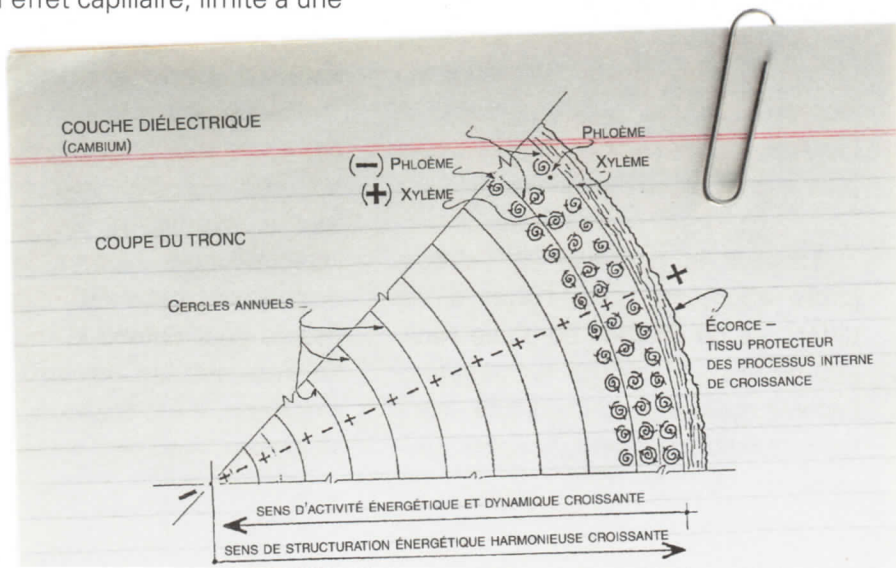 l'effet capillaire, limité à une
COUCHE DIÉLECTRIQUE
(CAMBIUM)
PHLOÈME
(−) PHLOÈME
XYLÈME
(+) XYLÈME
COUPE DU TRONC
CERCLES ANNUELS
+
ÉCORCE –
TISSU PROTECTEUR
DES PROCESSUS INTERNE
DE CROISSANCE
−
SENS D'ACTIVITÉ ÉNERGÉTIQUE ET DYNAMIQUE CROISSANTE
SENS DE STRUCTURATION ÉNERGÉTIQUE HARMONIEUSE CROISSANTE